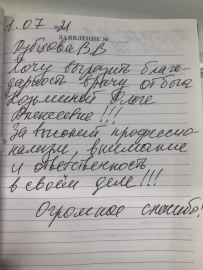 1.07.21
ЗАЯВЛЕНИЕ №
Рубцова В.В
Хочу выразить благо-
дарность врачу от бога
Козьминой Ольге
Алексеевне!!!
За высокий профессио-
нализм, внимание
и ответственность
в своём деле!!!
Огромное спасибо!